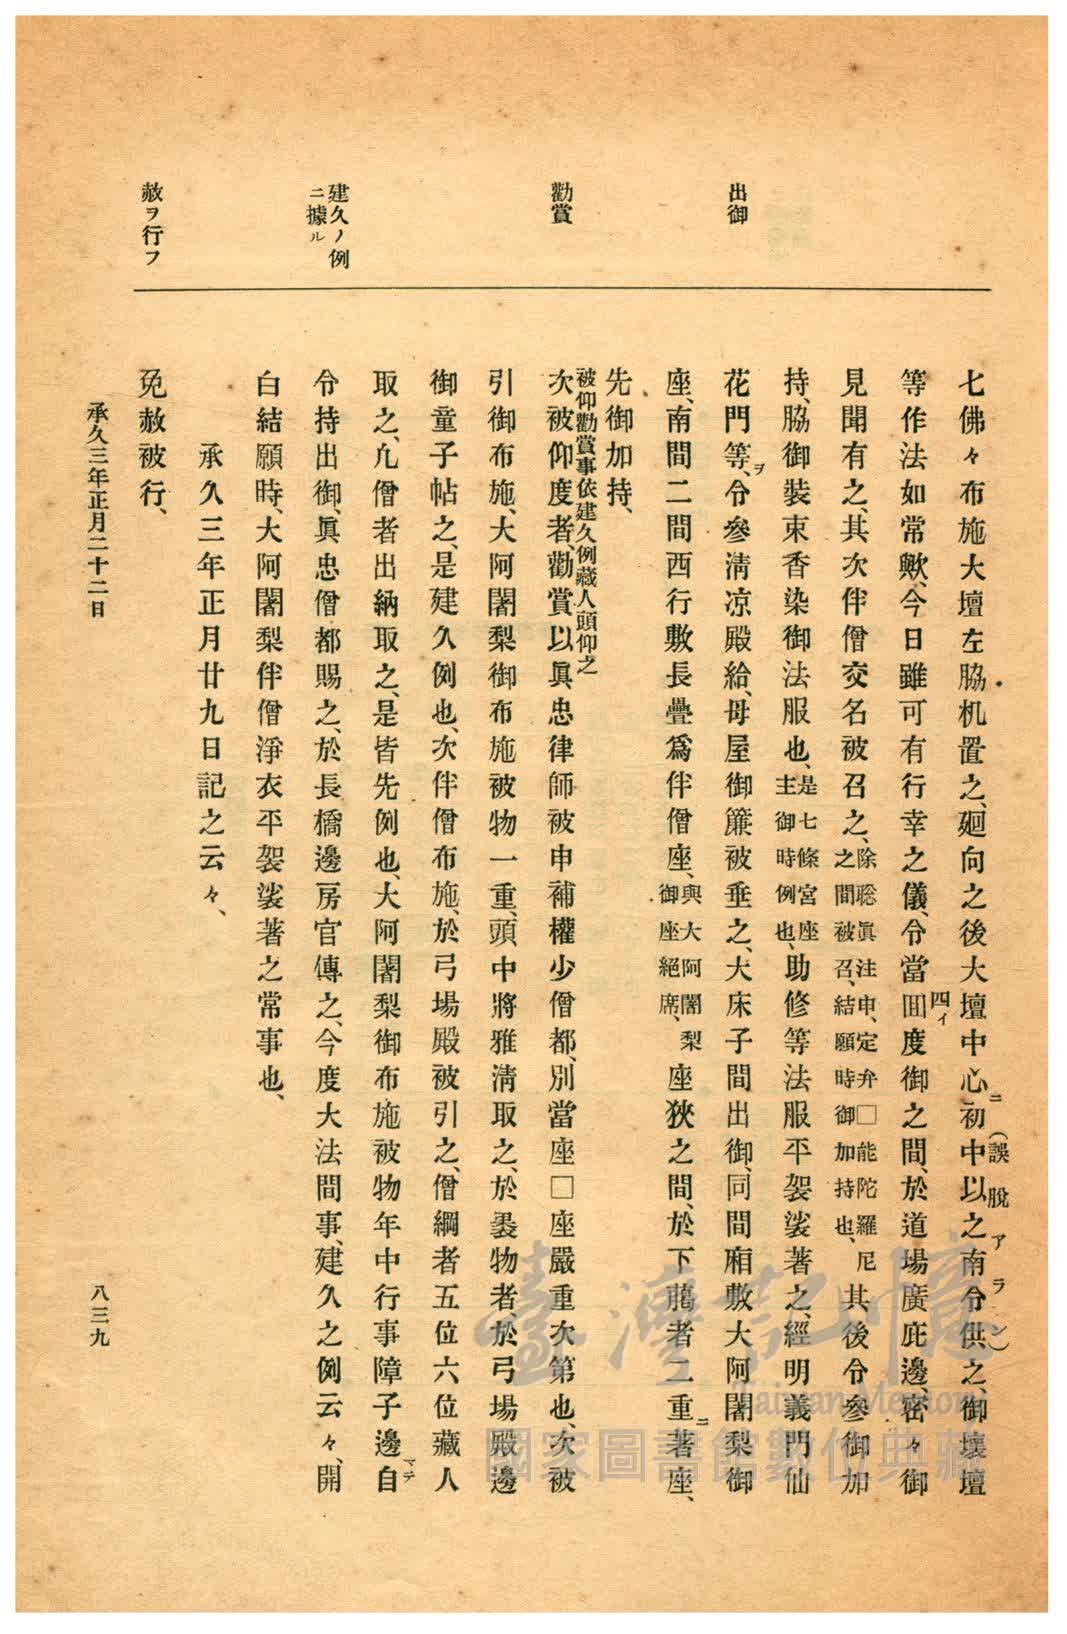 出御
勸賞
建久ノ例
ニ據ル
赦ヲ行フ
七佛々布施大壇左脇机置之、廻向之後大壇中心ニ初中以之南令供之、御壞壇
(誤脫アラン)
等作法如常歟、今日雖可有行幸之儀、令當田度御之間、於道場廣庇邊、密々御
四イ
見聞有之、其次伴僧交名被召之、除聡眞注申、定弁□能陀羅尼之間被召、結願時御加持也、其後令參御加
持、脇御裝束香染御法服也、是七條宮座主御時例也、助修等法服平袈裟著之、經明義門仙
花門等ヲ、令參淸凉殿給、母屋御簾被垂之、大床子間出御、同間廂敷大阿闍梨御
座、南間二間西行敷長疊、爲伴僧座、與大阿闍梨御座絕席、座狹之間、於下﨟者二重ニ著座、
先御加持、
被仰勸賞事依建久例藏人頭仰之
次被仰度者、勸賞以眞忠律師被申補權少僧都、別當座□座嚴重次第也、次被
引御布施、大阿闍梨御布施被物一重、頭中將雅淸取之、於裹物者、於弓場殿邊
御童子帖之、是建久例也、次伴僧布施、於弓場殿被引之、僧綱者五位六位藏人
取之、凡僧者出納取之、是皆先例也、大阿闍梨御布施被物年中行事障子邊マデ自
令持出御、眞忠僧都賜之、於長橋邊房官傳之、今度大法間事、建久之例云々、開
白結願時、大阿闍梨伴僧淨衣平袈裟著之常事也、
承久三年正月廿九日記之云々、
免赦被行、
承久三年正月二十二日
八三九
臺灣記憶
Taiwan Memory
國家圖書館數位典藏